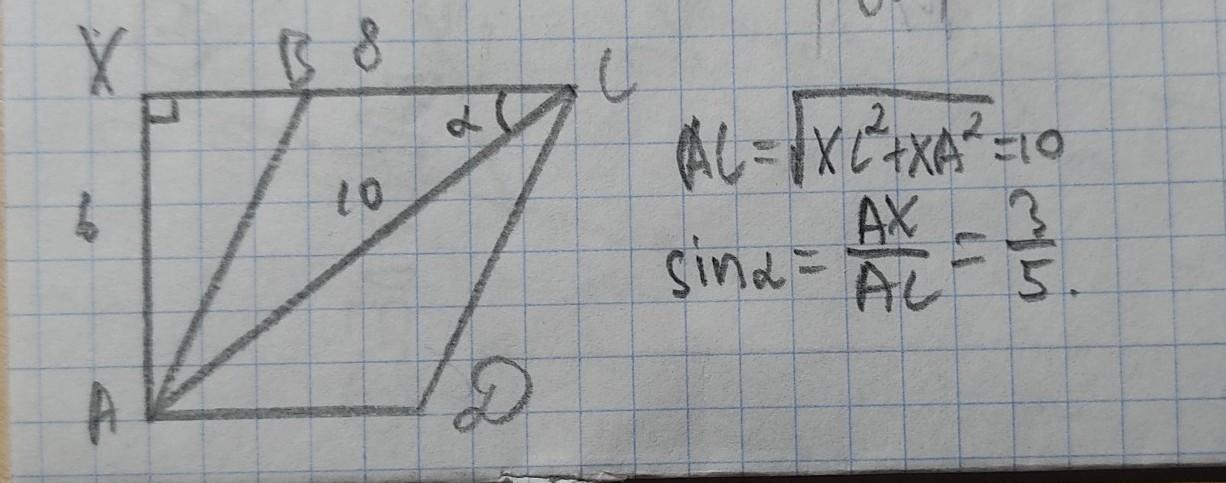 X B 8 C
α
10
6
A D
AC = √XC²+XA² = 10
sinα = AX/AC = 3/5.